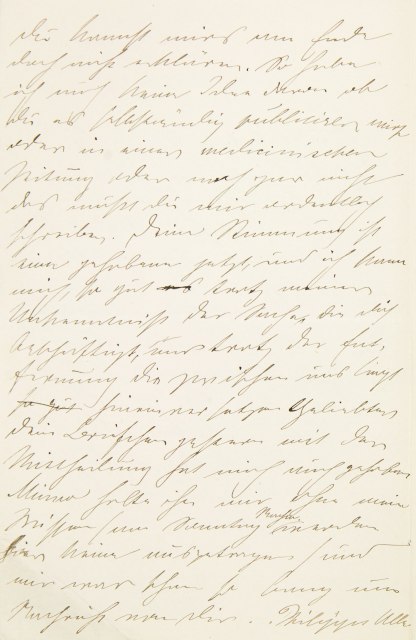 du kannst mirs am Ende
doch nicht erklären. So habe
ich noch keine Idee davon ob
du es selbständig publiciren wirst
oder in einer medicinischen
Zeitung oder noch gar nicht
das mußt du mir ordentlich
schreiben. Deine Stimmung ist
eine gehobene jetzt, und ich kann
mich, so gut trotz meiner
Unkenntniß der Sache, die dich
beschäftigt, und trotz der Ent-
fernung die zwischen uns liegt
so gut hineinversetzen Geliebter
Dein Briefchen gestern mit der
Mittheilung hat mich auch gehoben
Minna holte ihn mir ohne mein
Wissen am Sonntag Nachm
hier keine ausgetragen und
mir war schon so bang um
Nachricht von dir. Philipps